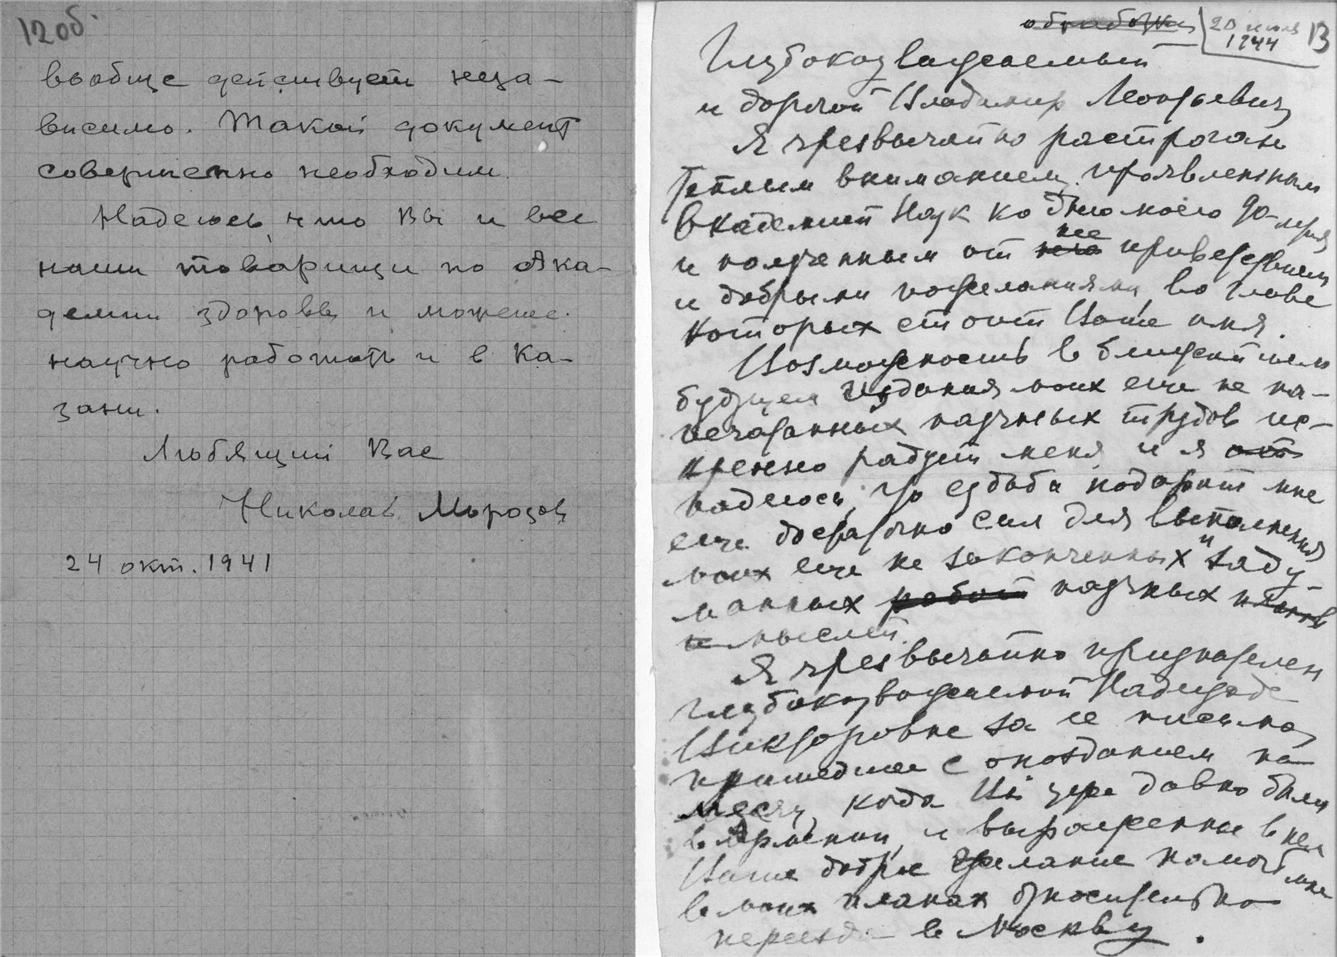 12об
вообще действует неза-
висимо. Такой документ
совершенно необходим.
Надеюсь, что Вы и все
наши товарищи по Ака-
демии здоровы и можете
научно работать и в Ка-
зани.
Любящий Вас
Николай Морозов
24 окт. 1941
обработка
20 июля
1944
13
Глубокоуважаемый
и дорогой Владимир Леонтьевич
Я чрезвычайно растроган
теплым вниманием, проявленным
Академией Наук ко дню моего
и полученным от нее приветствием
и добрыми пожеланиями, во главе
которых стоит Ваше имя.
Возможность в ближайшем
будущем издания моих еще не на-
печатанных научных трудов ис-
кренно радует меня и я
надеюсь, что судьба подарит мне
еще достаточно сил для выполнения
моих еще не законченных и заду-
манных работ научных планов
и мыслей.
Я чрезвычайно признателен
глубокоуважаемой Надежде
Викторовне за ее письмо,
пришедшее с опозданием на
месяц, когда Вы уже давно были
в Армении, и выраженное в нем
Ваше доброе желание помочь мне
в моих планах относительно
переезда в Москву.